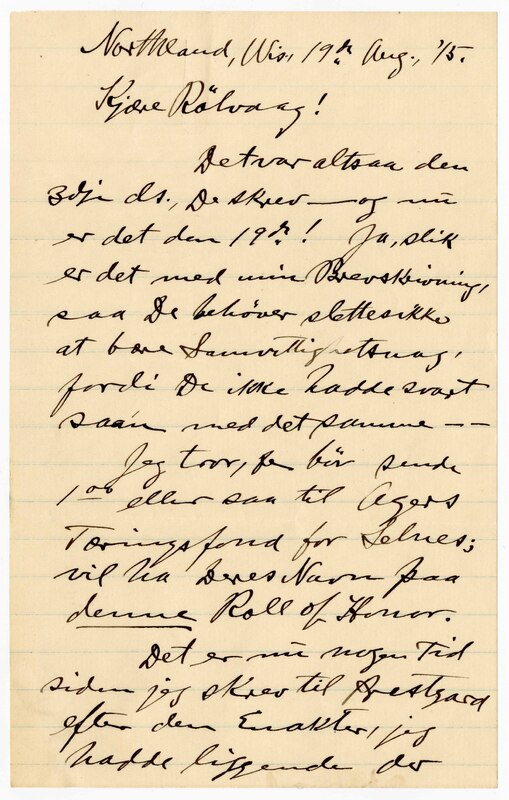 Northland, Wis. 19de Aug., '15.
Kjære Rölvaag!
Det var altsaa den
3dje ds., De skrev — og nu
er det den 19de! Ja, slik
er det med min Brevskrivning,
saa De behöver slettes ikke
at bære Samvittighetsnag,
fordi De ikke hadde svart
saan med det samme — —
Jeg tror, De bör sende
1.00 eller saa til Agers
Tæringsfond for Selnes;
vil ha Deres Navn paa
denne Roll of Honor.
Det er nu nogen Tid
siden jeg skrev til Arestgard
efter den Enakter, jeg
hadde liggende der